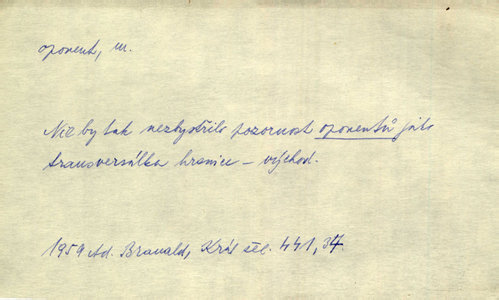 oponent, m.
Nic by tak nezbystřilo pozornost oponentů jako
transversálka hranice – východ.
1959 Ad. Branald, Král žel. 441, 37.